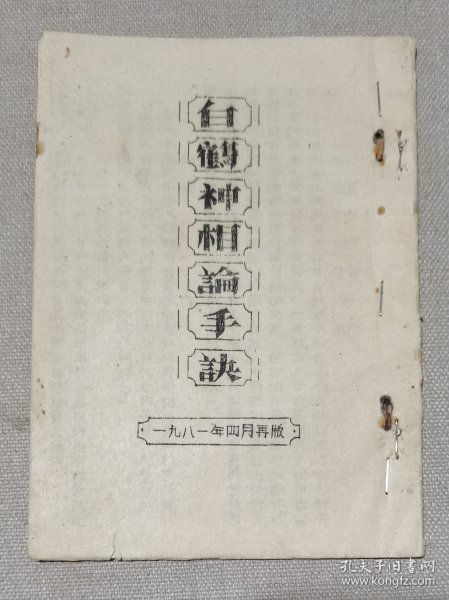 白鶴神相論手訣
一九八一年四月再版
孔夫子旧书网
www.kongfz.com